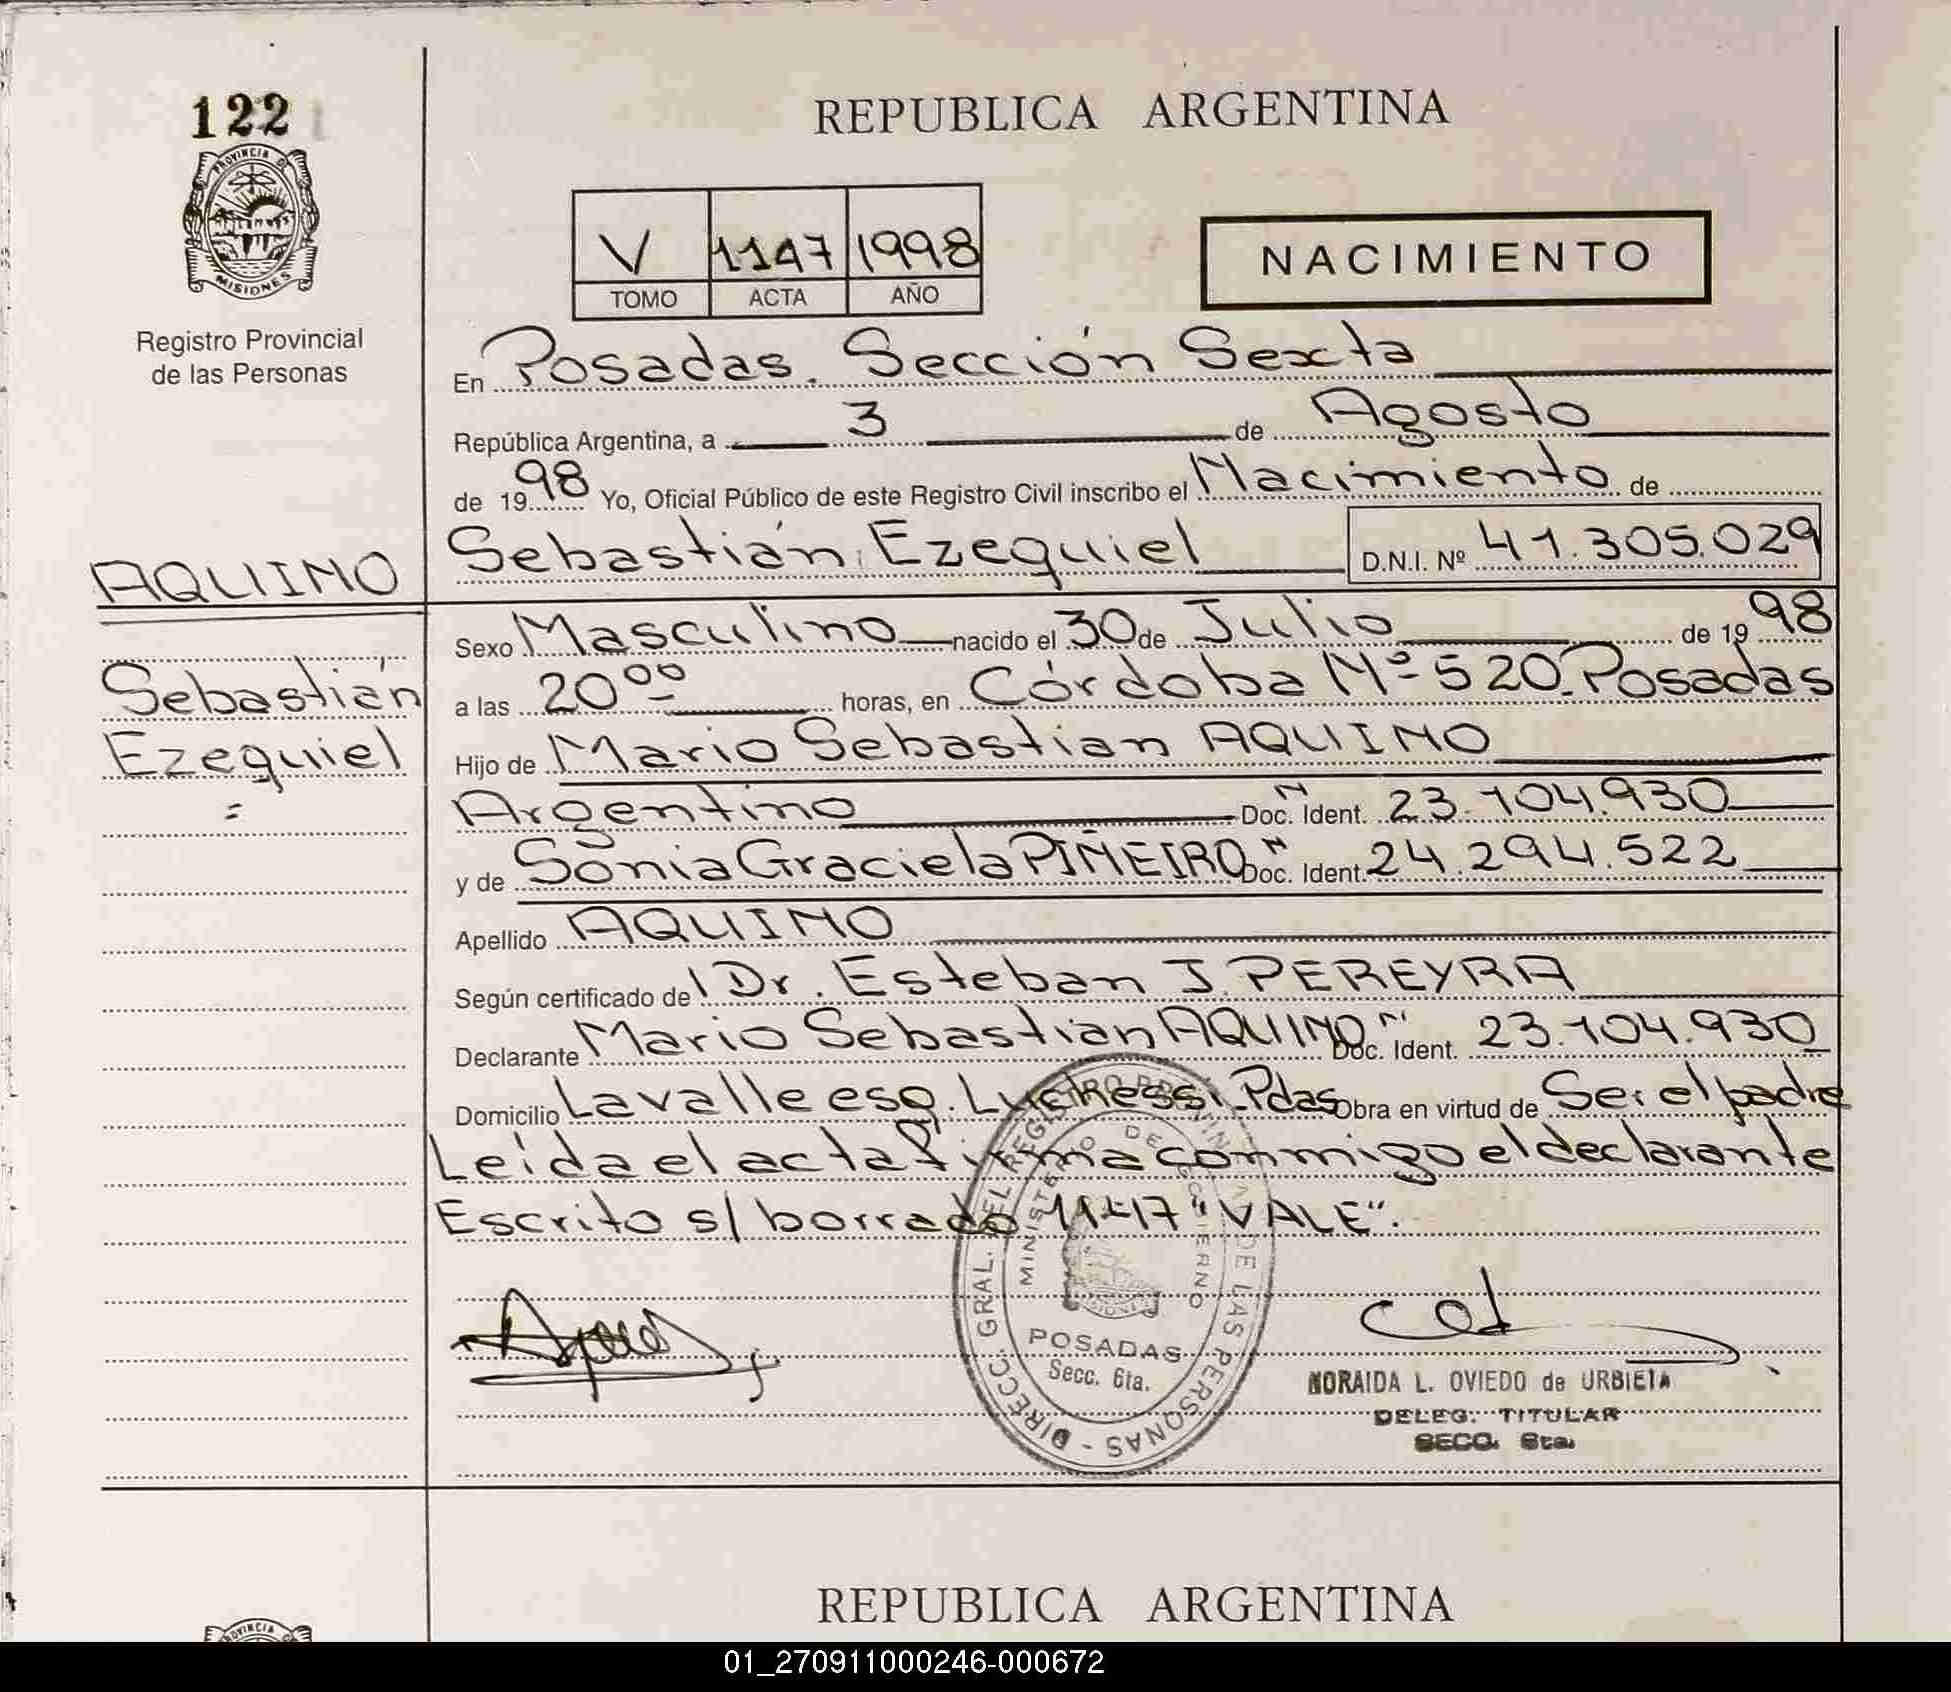 122
PROVINCIA DE
MISIONES
Registro Provincial
de las Personas
REPUBLICA ARGENTINA
V 1147 1998
TOMO ACTA AÑO
NACIMIENTO
En Posadas. Sección Sexta
República Argentina, a 3 de Agosto
de 1998 Yo, Oficial Público de este Registro Civil inscribo el Nacimiento de
AQUINO
Sebastián Ezequiel D.N.I. Nº 41.305.029
Sexo Masculino nacido el 30 de Julio de 1998
Sebastián
Ezequiel
=
a las 20⁰⁰ horas, en Córdoba Nº 520. Posadas
Hijo de Mario Sebastian AQUINO
Argentino Doc. N Ident. 23.104.930
y de Sonia Graciela PIÑEIRO Doc. N Ident. 24.294.522
Apellido AQUINO
Según certificado del Dr. Esteban J. PEREYRA
Declarante Mario Sebastián AQUINO Doc. N Ident. 23.104.930
Domicilio Lavalle esq. Luchessi. Pdas Obra en virtud de Ser el padre
Leída el acta firma conmigo el declarante
Escrito s/ borrado 1147 "VALE".
DIRECC. GRAL. DEL REGISTRO PROVINCIAL DE LAS PERSONAS -
MINISTERIO DE GOBIERNO
MISIONES
POSADAS
Secc. 6ta.
NORAIDA L. OVIEDO de URBIETA
DELEG. TITULAR
SECC. 6ta.
REPUBLICA ARGENTINA
PROVINCIA
01_270911000246-000672